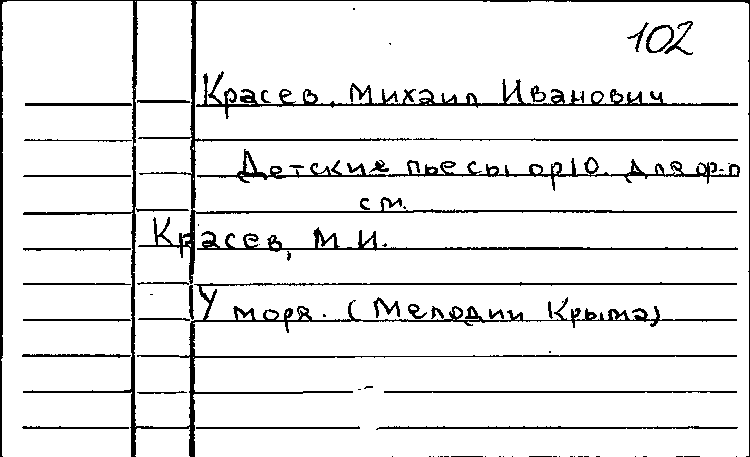 102
Красев, Михаил Иванович
Детские пьесы op10. для ф-п
см.
Красев, М.И.
У моря. (Мелодии Крыма)